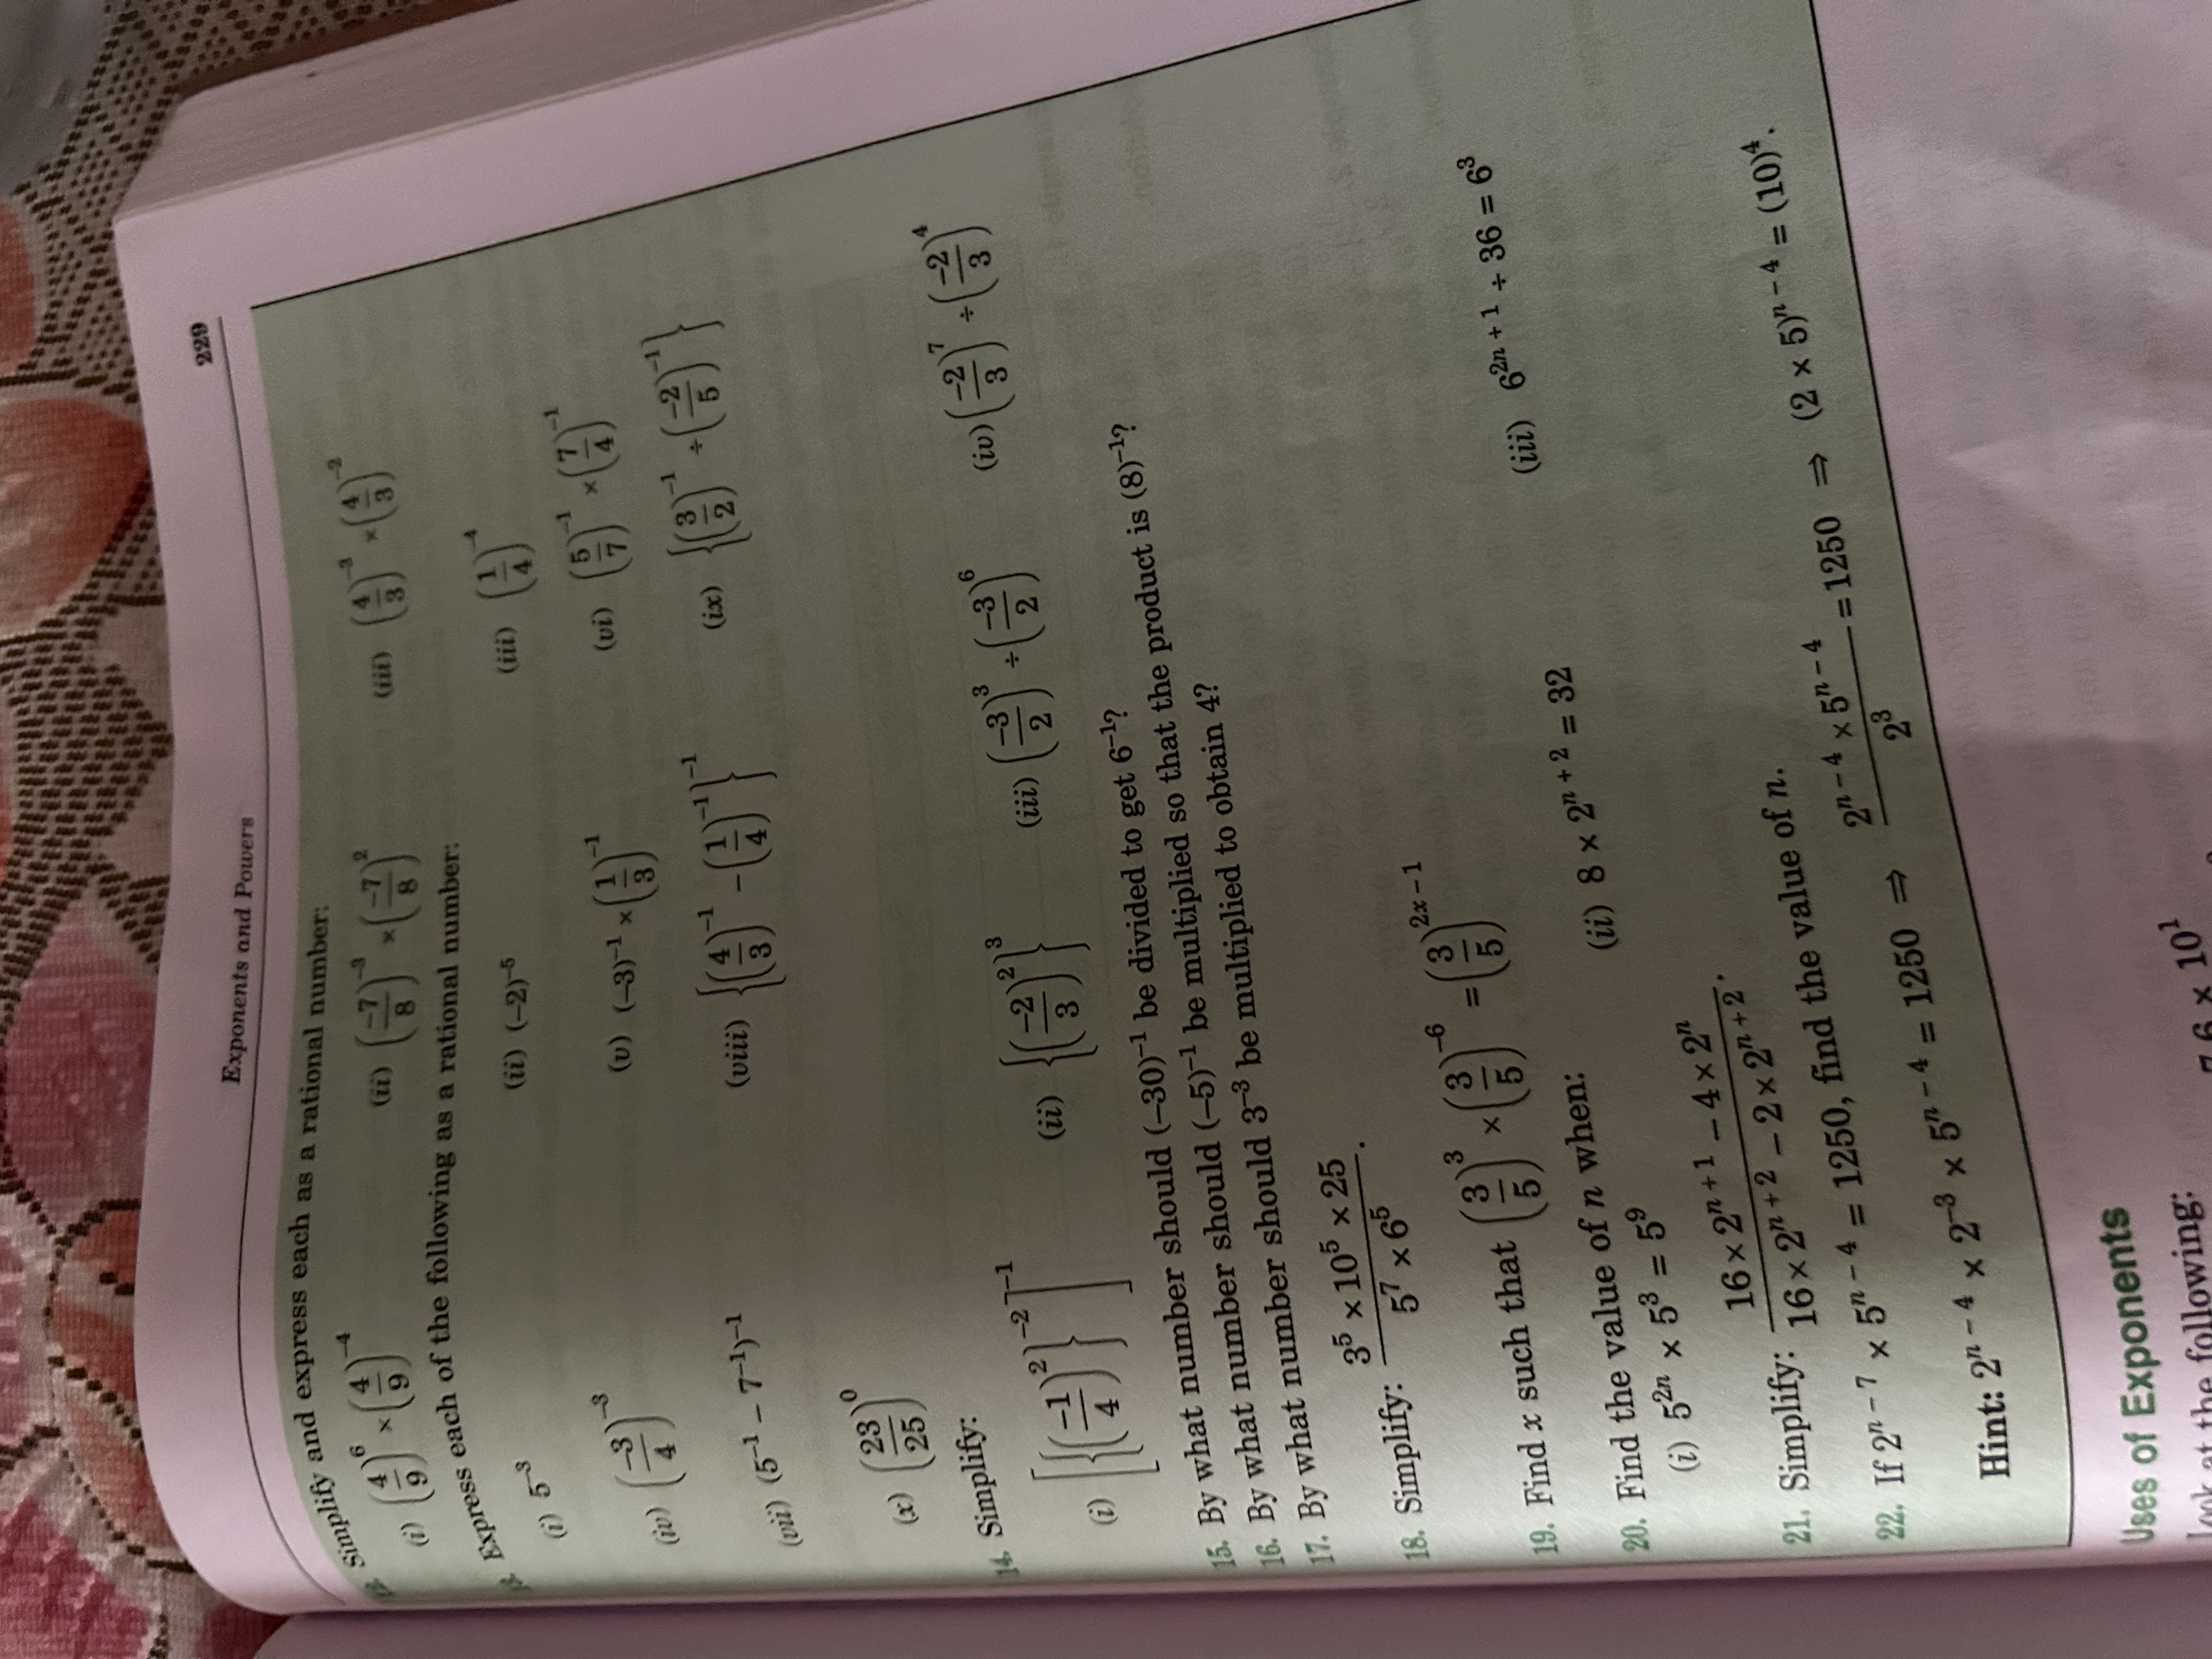 Exponents and Powers 229
12. Simplify and express each as a rational number:
(i) (4/9)^6 × (4/9)^-4 (ii) (-7/8)^-3 × (-7/8)^2 (iii) (4/3)^-3 × (4/3)^-2
13. Express each of the following as a rational number:
(i) 5^-3 (ii) (–2)^-5 (iii) (1/4)^-4
(iv) (-3/4)^-3 (v) (–3)^-1 × (1/3)^-1 (vi) (5/7)^-1 × (7/4)^-1
(vii) (5^-1 – 7^-1)^-1 (viii) {(4/3)^-1 – (1/4)^-1}^-1 (ix) {(3/2)^-1 ÷ (-2/5)^-1}
(x) (23/25)^0
14. Simplify:
(i) [{(-1/4)^2}^-2]^-1 (ii) {(-2/3)^2}^3 (iii) (-3/2)^3 ÷ (-3/2)^6 (iv) (-2/3)^7 ÷ (-2/3)^4
15. By what number should (–30)^-1 be divided to get 6^-1?
16. By what number should (–5)^-1 be multiplied so that the product is (8)^-1?
17. By what number should 3^-3 be multiplied to obtain 4?
18. Simplify: (3^5 × 10^5 × 25)/(5^7 × 6^5).
19. Find x such that (3/5)^3 × (3/5)^-6 = (3/5)^(2x – 1)
20. Find the value of n when:
(i) 5^2n × 5^3 = 5^9 (ii) 8 × 2^(n + 2) = 32 (iii) 6^(2n + 1) ÷ 36 = 6^3
21. Simplify: (16 × 2^(n + 1) – 4 × 2^n)/(16 × 2^(n + 2) – 2 × 2^(n + 2)).
22. If 2^(n – 7) × 5^(n – 4) = 1250, find the value of n.
Hint: 2^(n – 4) × 2^-3 × 5^(n – 4) = 1250 ⇒ (2^(n – 4) × 5^(n – 4))/2^3 = 1250 ⇒ (2 × 5)^(n – 4) = (10)^4.
Uses of Exponents
Look at the following: